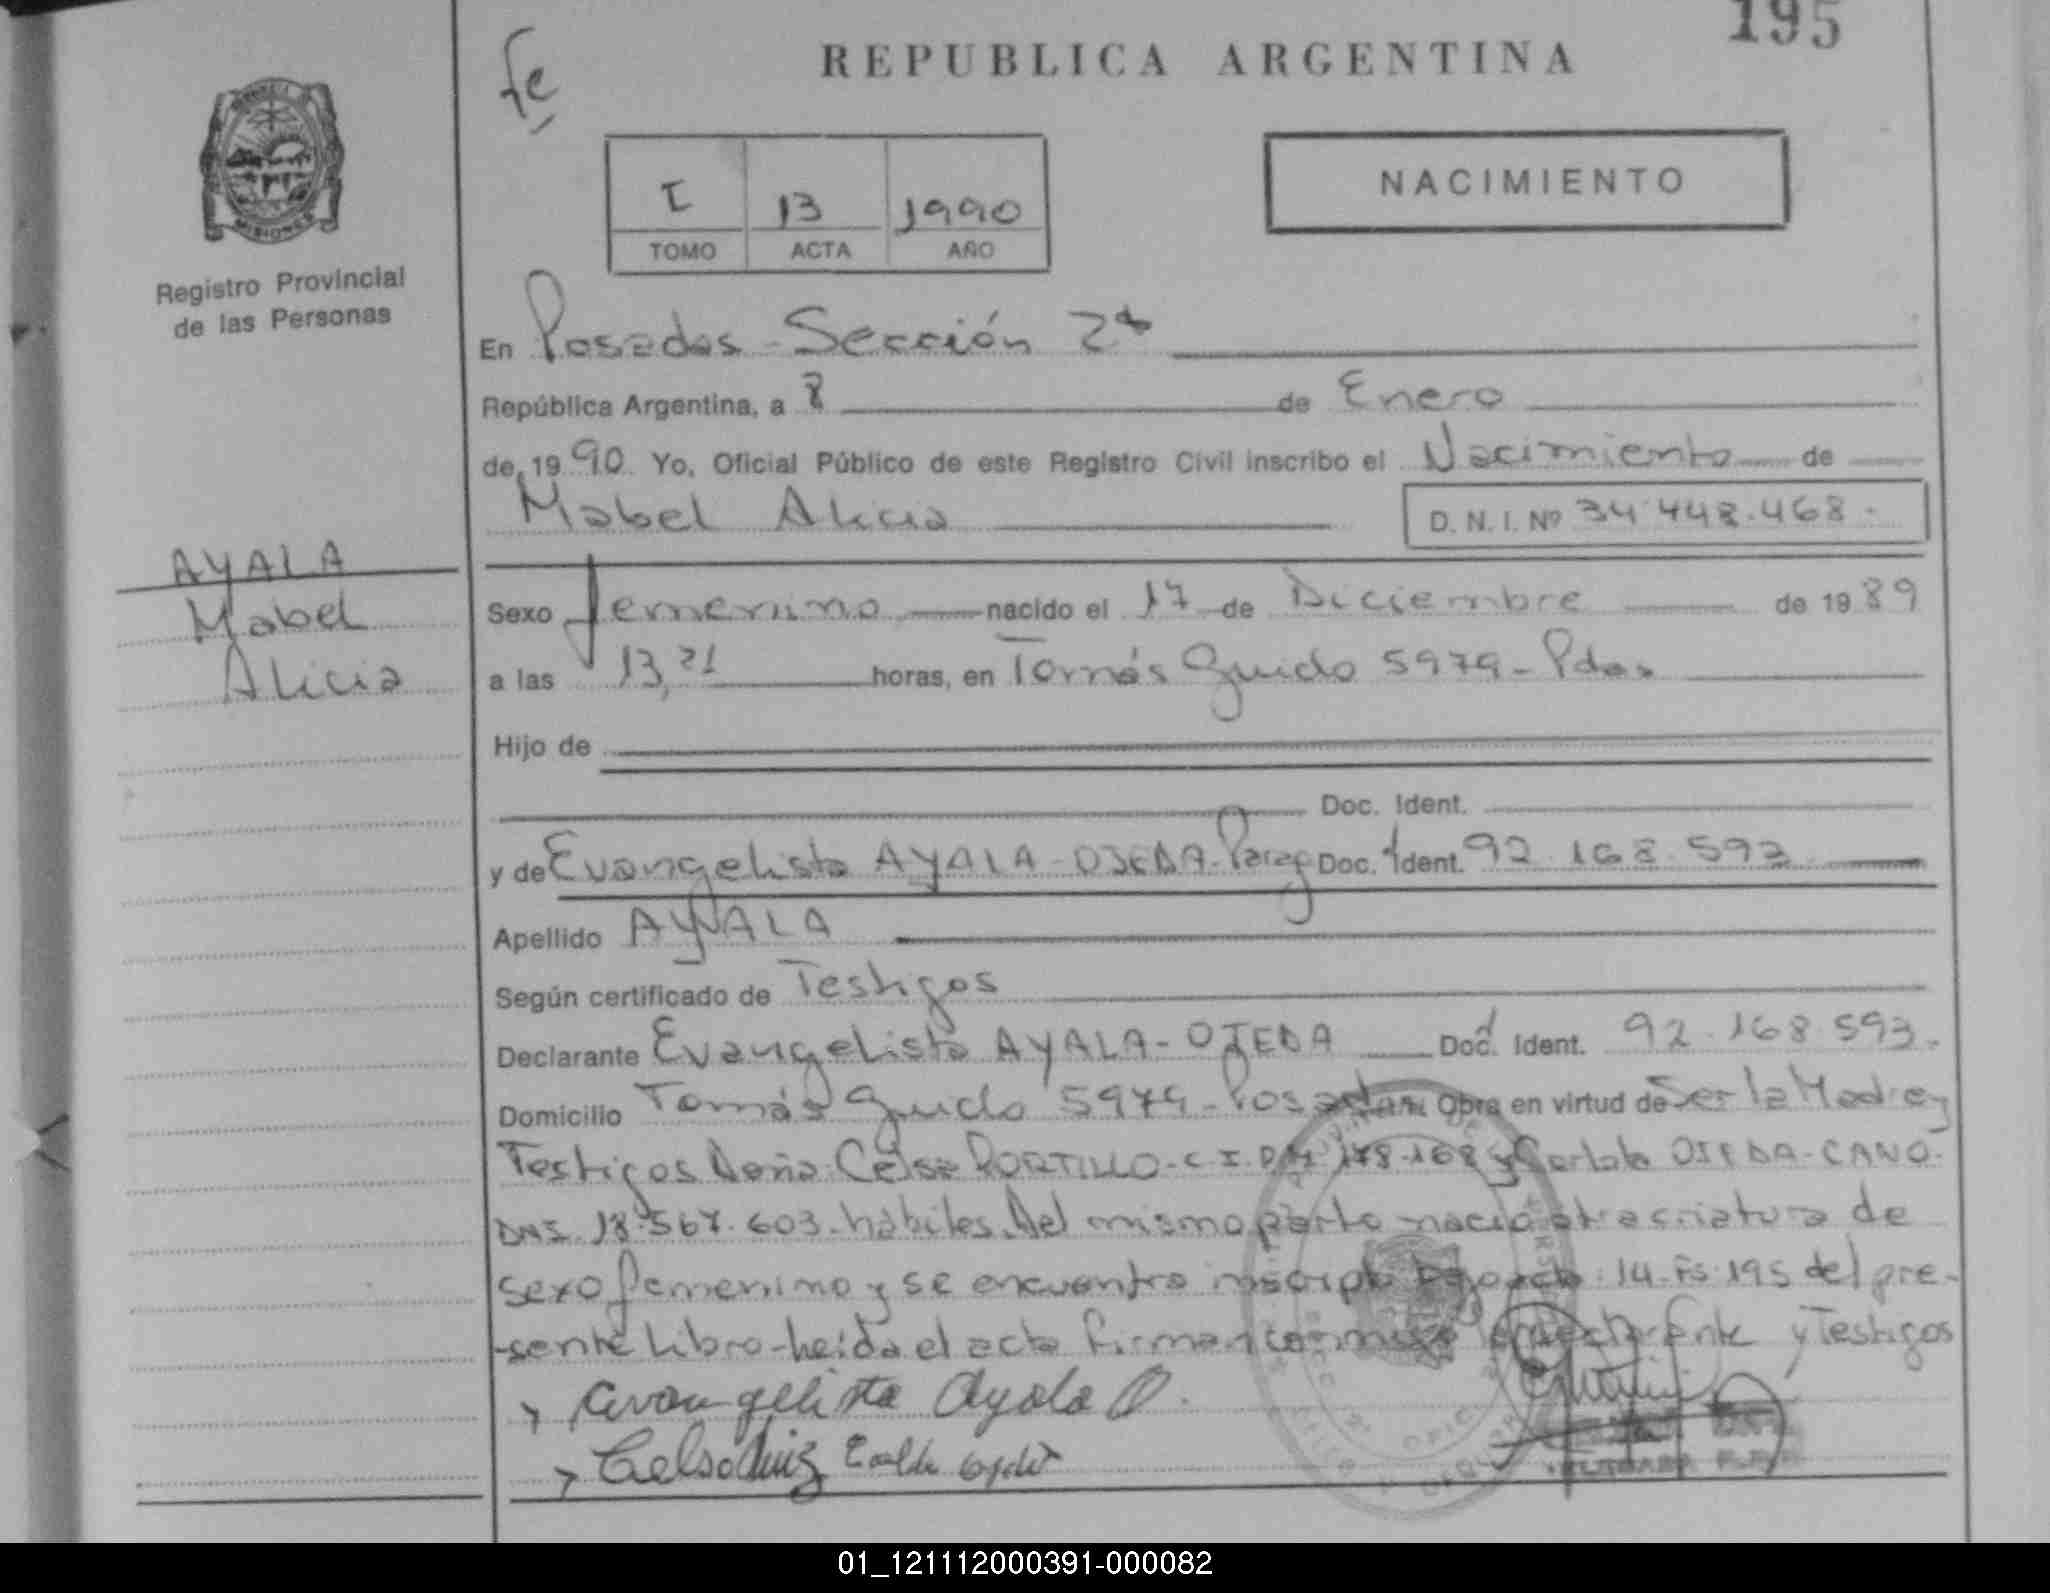 195
Fe
REPUBLICA ARGENTINA
I 13 1990
TOMO ACTA AÑO
NACIMIENTO
MISIONES
Registro Provincial
de las Personas
En Posadas - Sección 2ª
República Argentina, a 8 de Enero
de 1990 Yo, Oficial Público de este Registro Civil inscribo el Nacimiento de
Mabel Alicia
D. N. I. Nº 34.448.468.
AYALA
Mabel
Alicia
Sexo femenino nacido el 17 de Diciembre de 1989
a las 13,21 horas, en Tomás Guido 5979 - Pdas
Hijo de
Doc. Ident.
y de Evangelista AYALA - OJEDA - Parag Doc. Ident. 92.168.593
Apellido AYALA
Según certificado de Testigos
Declarante Evangelista AYALA - OJEDA Doc. Ident. 92.168.593.
Domicilio Tomás Guido 5979 - Posadas Obra en virtud de Ser la Madre y
Testigos Doña: Celsa PORTILLO - C.I. 178.168 y OJEDA - CANO -
DNI. 18.567.603. hábiles. Del mismo parto nació otra criatura de
sexo femenino y se encuentra inscripta bajo acta: 14 - Fs. 195 del pre-
-sente Libro - Leída el acta firman conmigo la declarante y Testigos
Evangelista Ayala O.
01_121112000391-000082